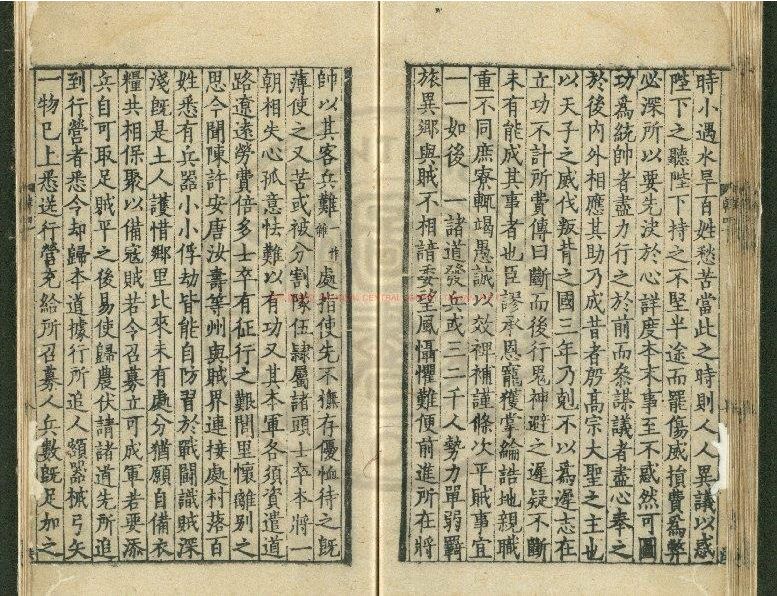 時小遇水旱百姓愁苦當此之時則人人異議以惑
陛下之聽陛下持之不堅半途而罷傷威損費為弊
必深所以要先決於心詳度本末事至不惑然可圖
功為統帥者盡力行之於前而叅謀議者盡心奉之
於後內外相應其助乃成昔者殷高宗大聖之主也
以天子之威伐叛背之國三年乃剋不以為遲志在
立功不計所費傳曰斷而後行鬼神避之遲疑不斷
未有能成其事者也臣謬承恩寵獲掌綸誥地親職
重不同庶寮輒竭愚誠以效裨補謹條次平賊事宜
一一如後 一諸道發兵或三二千人勢力單弱羈
旅異鄉與賊不相諳委望風懾懼難便前進所在將
帥以其客兵難雖作處指使先不撫存優恤待之既
薄使之又苦或被分割隊伍隸屬諸頭士卒本將一
朝相失心孤意怯難以有功又其本軍各須資遣道
路遼遠勞費倍多士卒有征行之艱閭里懷離別之
思今聞陳許安唐汝壽等州與賊界連接處村落百
姓悉有兵器小小俘劫皆能自防習於戰鬪識賊深
淺既是土人護惜鄉里比來未有處分猶願自備衣
糧共相保聚以備寇賊若令召募立可成軍若要添
兵自可取足賊平之後易使歸農伏請諸道先所追
到行營者悉令却歸本道據行所追人額器械弓矢
一物已上悉送行營充給所召募人兵數既足加之